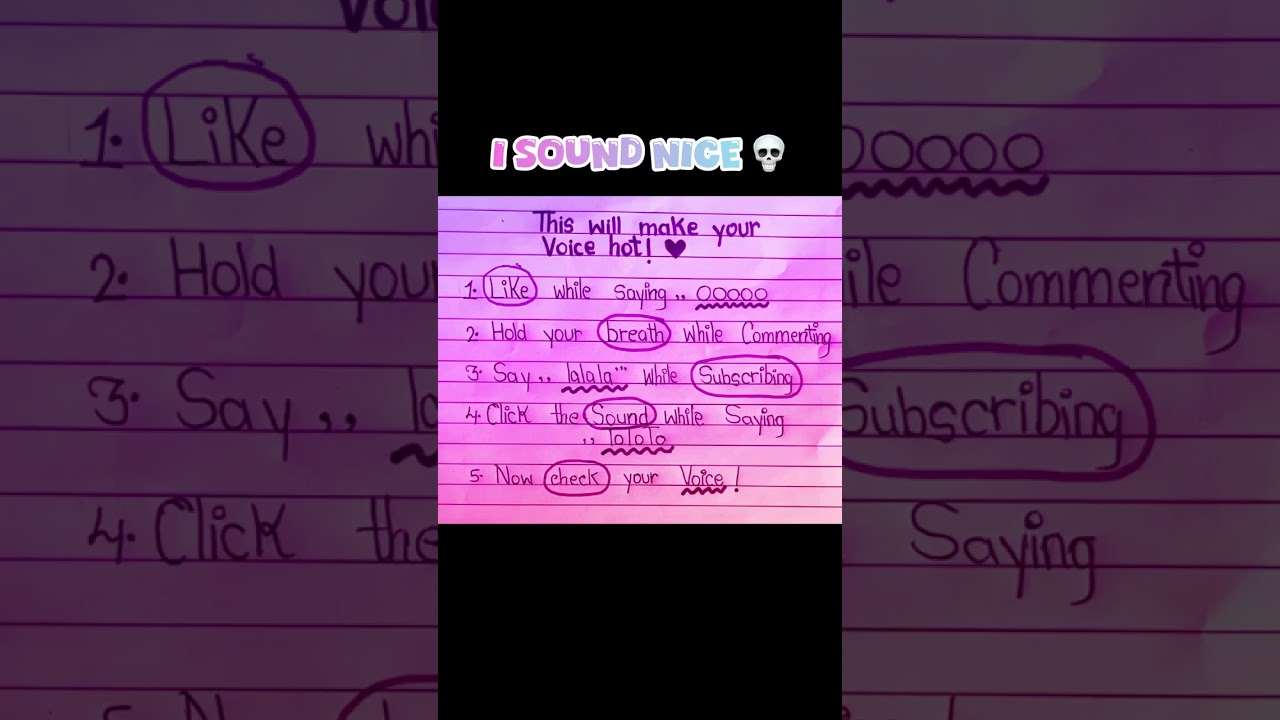 I SOUND NICE 💀
This will make your
Voice hot! ♥
1. Like while saying ,, OOOOO
2. Hold your breath while Commenting
3. Say ,, lalala''' while Subscribing
4. Click the Sound while Saying
,, lololo
5. Now check your Voice!